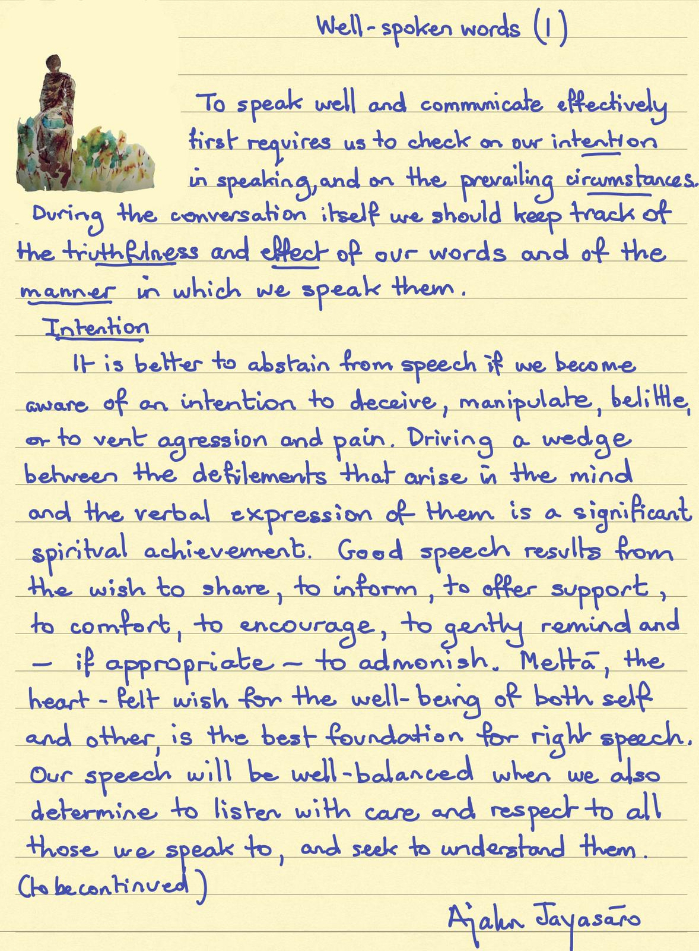 Well-spoken words (1)
To speak well and communicate effectively
first requires us to check on our intention
in speaking, and on the prevailing circumstances.
During the conversation itself we should keep track of
the truthfulness and effect of our words and of the
manner in which we speak them.
Intention
It is better to abstain from speech if we become
aware of an intention to deceive, manipulate, belittle,
or to vent agression and pain. Driving a wedge
between the defilements that arise in the mind
and the verbal expression of them is a significant
spiritual achievement. Good speech results from
the wish to share, to inform, to offer support,
to comfort, to encourage, to gently remind and
– if appropriate – to admonish. Mettā, the
heart-felt wish for the well-being of both self
and other, is the best foundation for right speech.
Our speech will be well-balanced when we also
determine to listen with care and respect to all
those we speak to, and seek to understand them.
(to be continued)
Ajahn Jayasāro